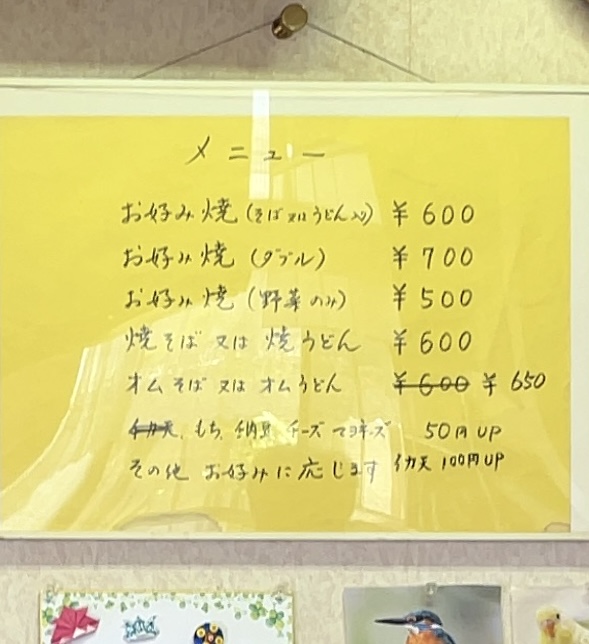 メニュー
お好み焼(そば又はうどん入り) ¥600
お好み焼(ダブル) ¥700
お好み焼(野菜のみ) ¥500
焼そば又は焼うどん ¥600
オムそば又はオムうどん ¥600 ¥650
イカ天、もち、納豆 チーズ マヨネーズ 50円UP
その他 お好みに応じます イカ天 100円UP